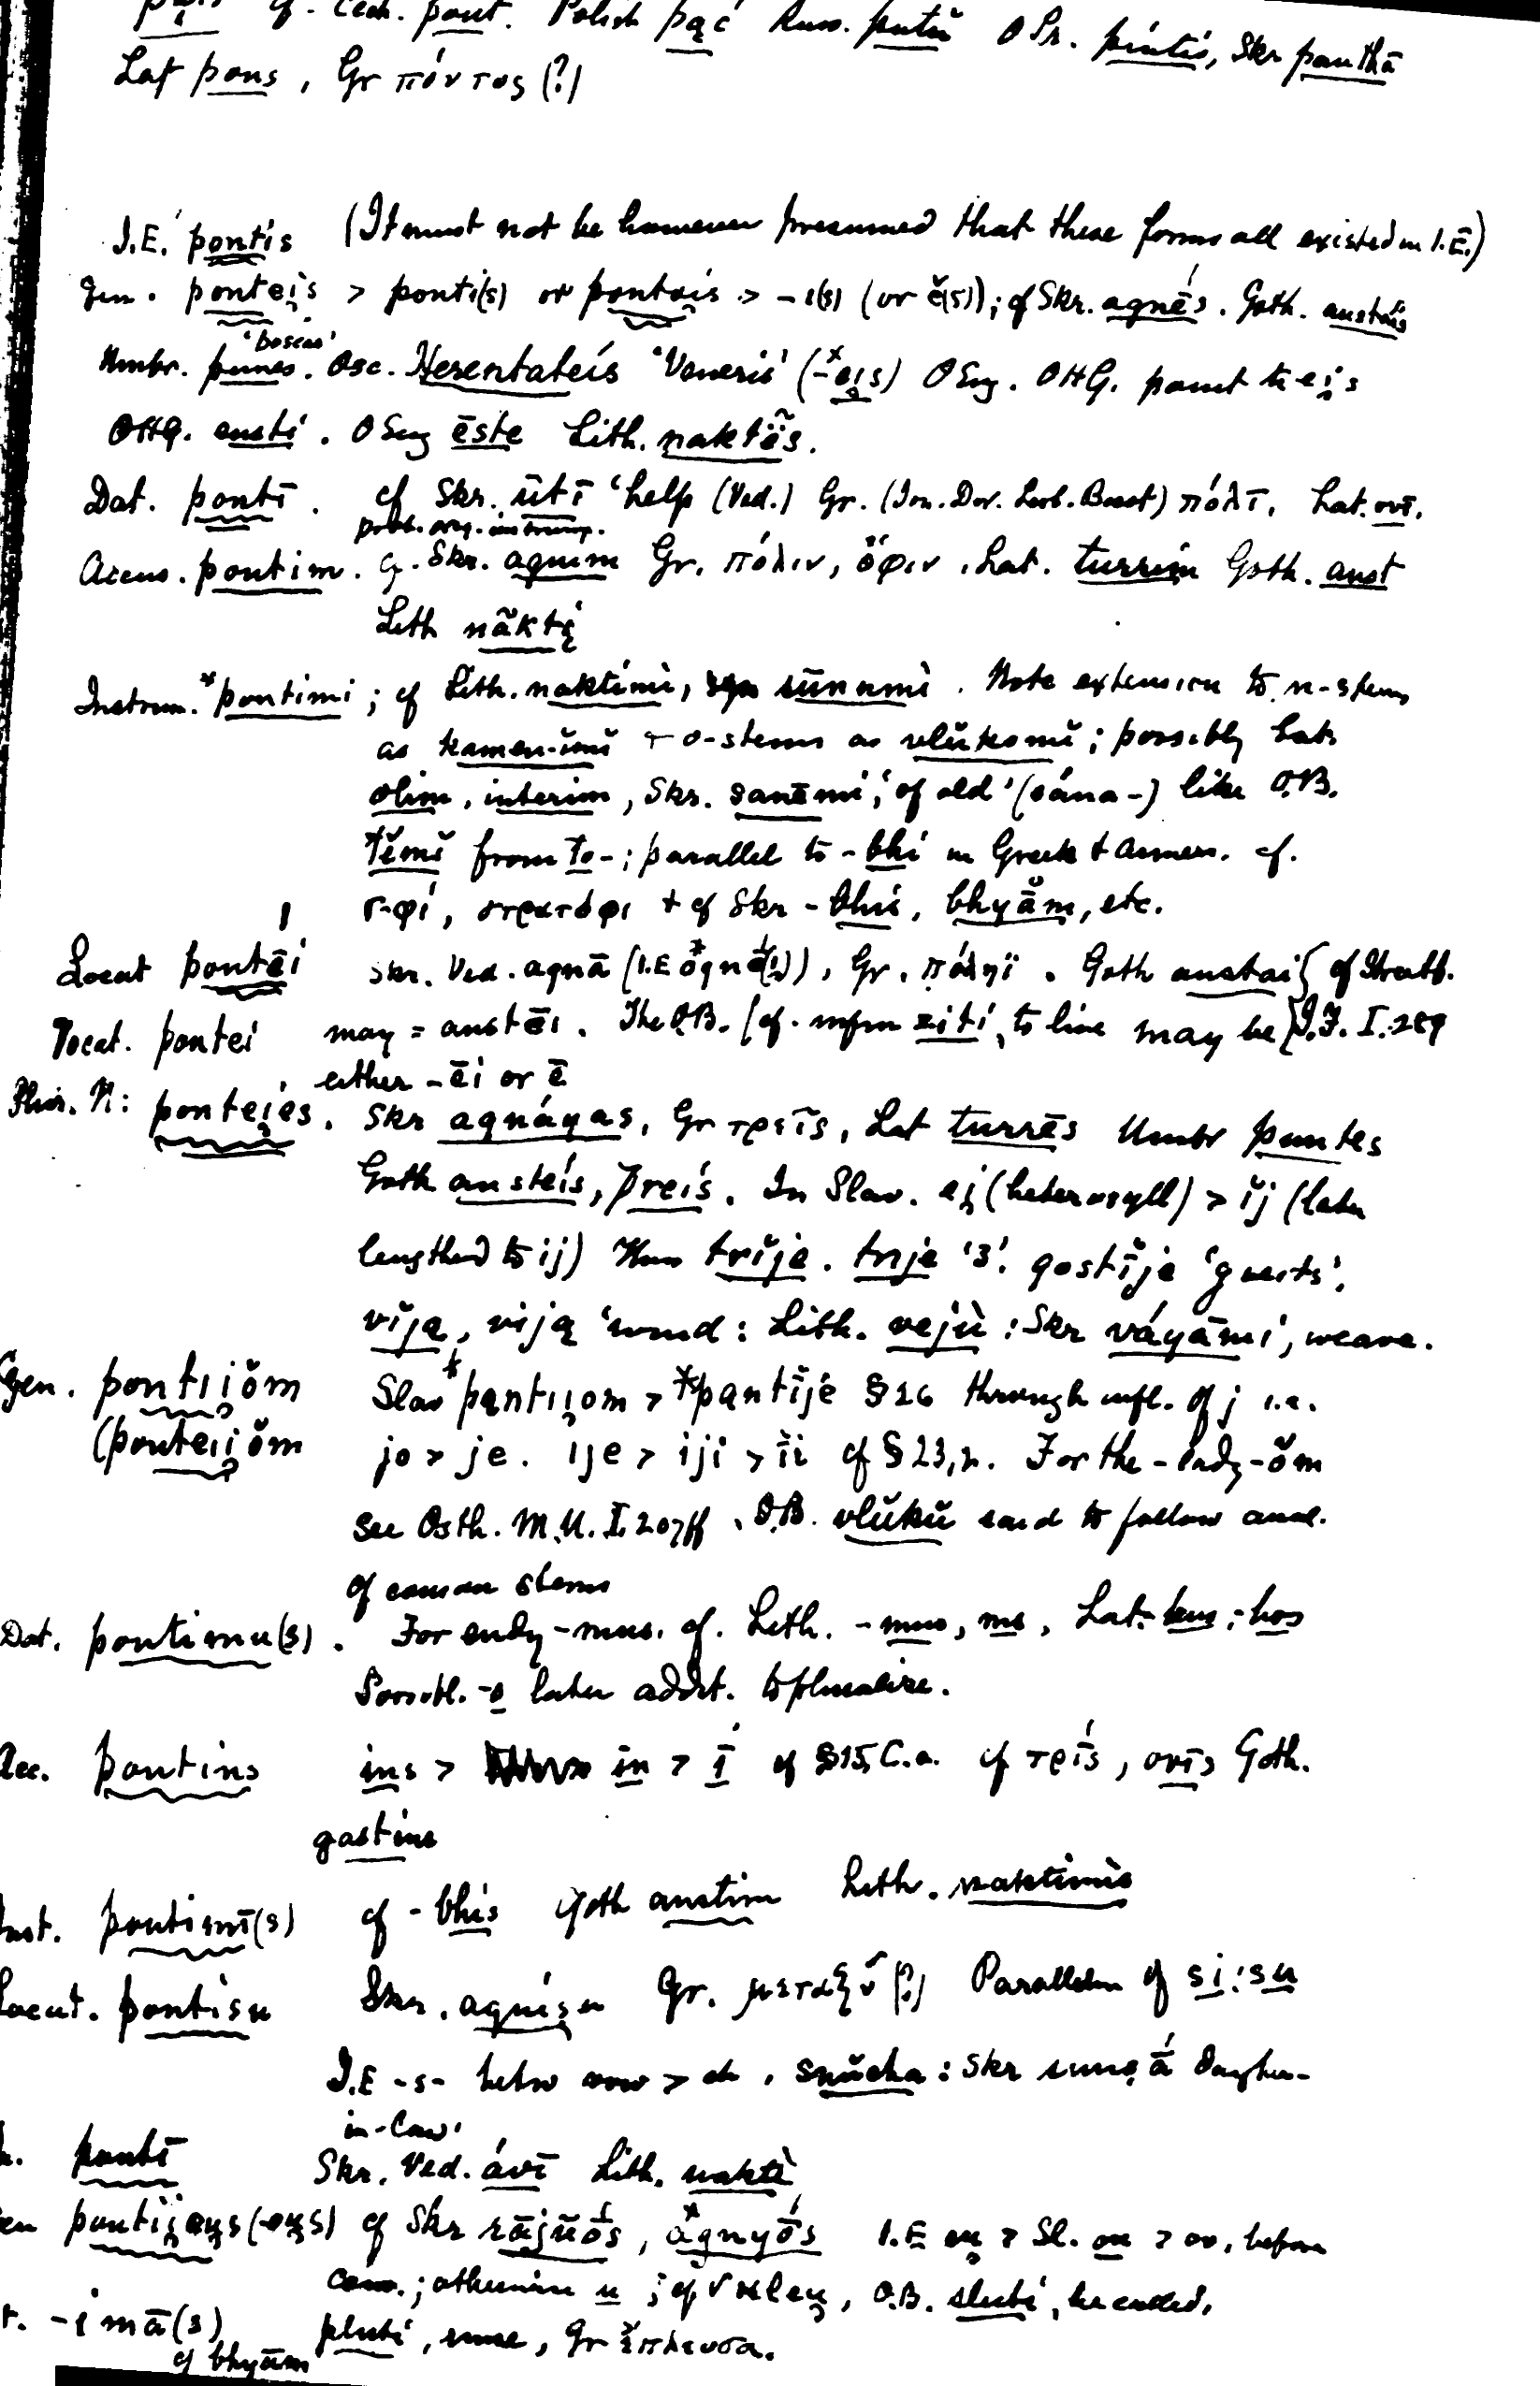 cf. Cech. pout. Polish pąć Russ. putĭ O Pr. pintis, Skr panthā
Lat pons, Gr πόντος (?)
I.E. pontis (It must not be however presumed that these forms all existed in I.E.)
Gen. ponteis > ponti(s) or pontois > -i(s) (or ĕ(s)); cf Skr. agnés. Goth. anstais
Umbr. punes. 'Osc. Herentateís 'Veneris' (*-eis) O Eng. OHG.
OHG. ensti. O Eng ēste Lith. naktẽs.
Dat. pontī. cf Skr. ūtī 'help (Ved.) Gr. (Ion. Dor. Lesb. Boeot) πόλῑ, Lat. ovī.
prob. orig. instrum.
Accus. pontim. cf. Skr. agnim Gr. πόλιν, ὄφιν. Lat. turrim Goth. anst
Lith nãktį
Instrum. *pontimi; cf Lith. naktimi, sūnumi. Note extension to n-stems
as kamen-ĭmĭ + o-stems as vlŭkomĭ; possibly Lat.
olim, interim, Skr. sanēmi, 'of old' (sána-) like O.B.
těmĭ from to-; parallel to -bhi in Greek + Armen. cf.
ϝ-φί, στρατόφι + cf Skr -bhis, bhyām, etc.
Locat pontēi Skr. Ved. agnā (I.E *ognē(i)), Gr. πόληϊ. Goth anstai { cf Streitb.
Vocat. pontei may = anstēi. The O.B. (cf. infin žiti, to live may be { I.F. I. 289
either -ēi or ē
Plur. N: ponteies. Skr agnáyas, Gr τρεῖς, Lat turrēs Umbr puntes
Goth ansteis, þreis. In Slav. ei (heterosyll) > ĭj (later
lengthed to ij) Thus trĭje. trije '3'. gostĭje 'guests'.
vĭją, viją 'wind: Lith. vejù: Skr váyāmi, weave.
Gen. pontiiŏm Slav *pantiiom > *pantĭje § 26 through infl. of j i.e.
(ponteiiŏm jo > je. ije > iji > ĭi cf § 23, n. For the -endg -ŏm
see Osth. M.U. I. 207ff. O.B. vlŭkŭ said to follow anal.
of conson stems
Dat. pontimu(s). For endg -mus. cf. Lith. -mus, ms, Lat. -bus; -bos
Possibl. -s later addit. to pluralize.
Acc. pontins ins > in > ī cf § 15, C.a. cf τρῖς, ovīs Goth.
gastins
Inst. pontimī(s) cf -bhis Goth anstim Lith. naktimis
Locat. pontisu Skr. agnisu Gr. μεταξύ (?) Parallelm of si: su
I.E -s- betw vow > ch, snŭcha: Skr snuṣā́ daughter-
in-law'
pontī Skr. Ved. ávī Lith. naktì
pontiious (-eus) cf Skr rājñós, *agnyós I.E eu > Sl. ou > ov, before
cons.; otherwise u; cf √kleu, O.B. sluti, be called,
-imā(s) pluti, Gr ἔπλευσα.
cf bhyām